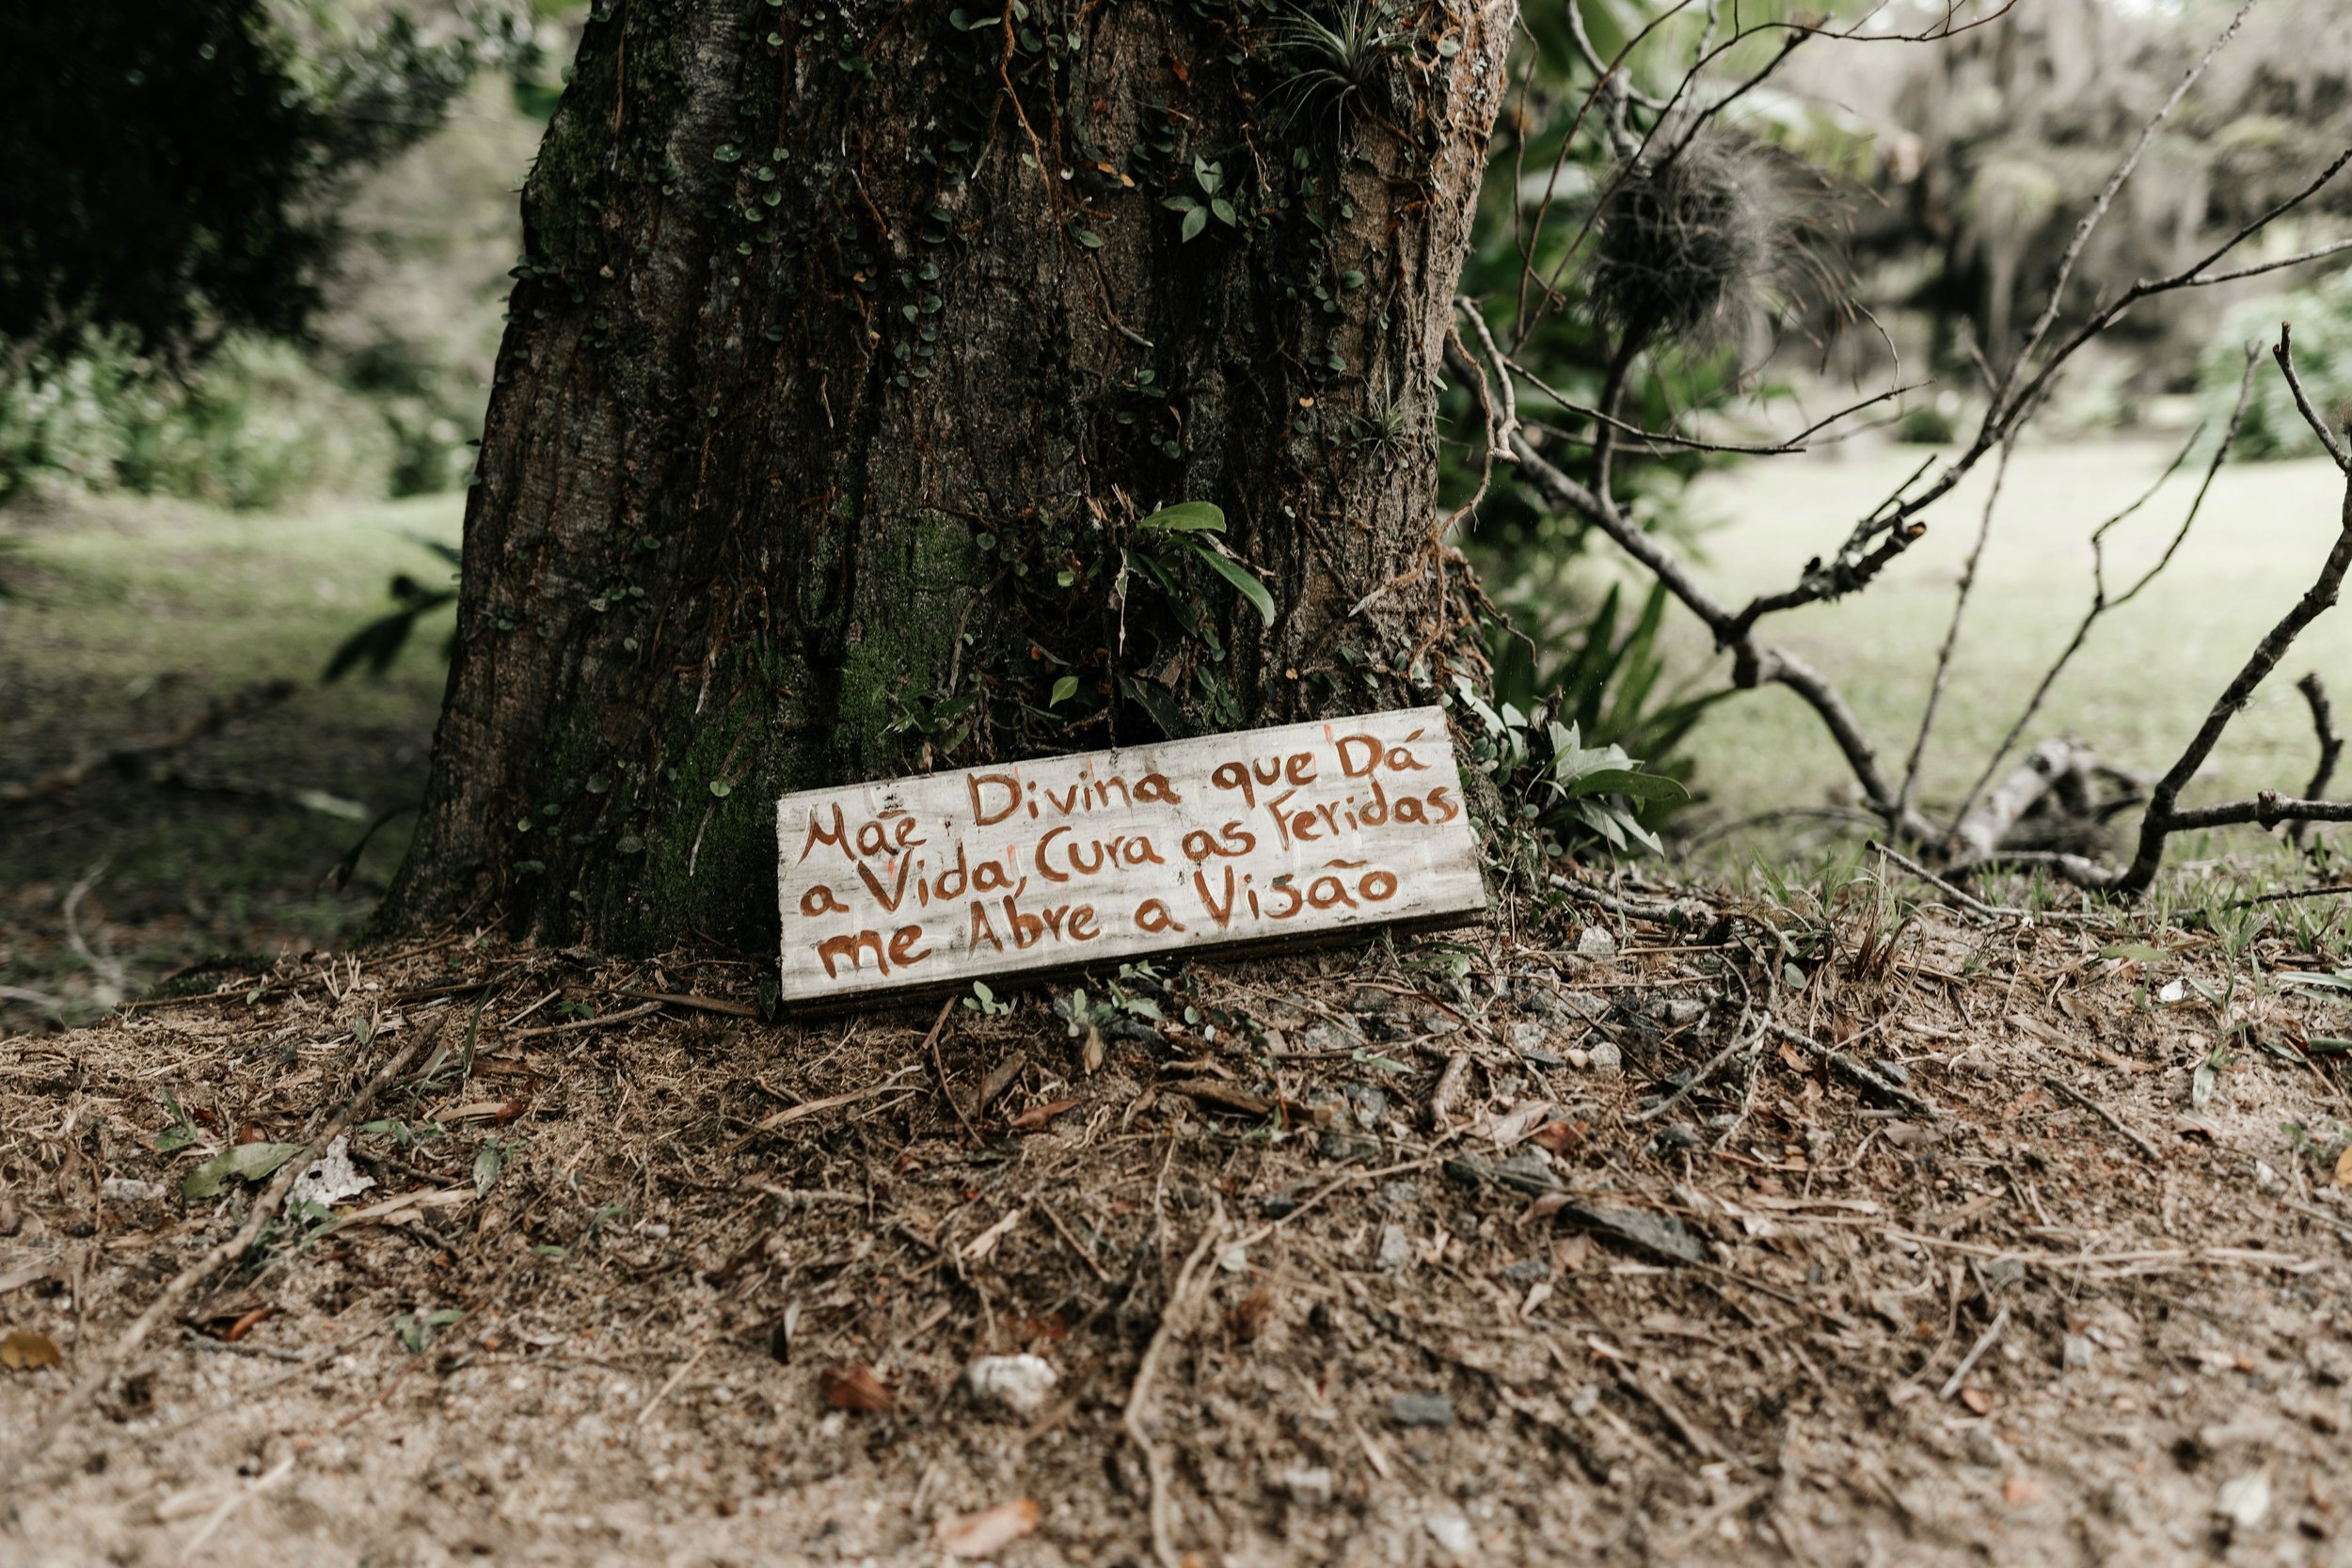 Mãe Divina que Dá
a Vida, Cura as Feridas
me Abre a Visão